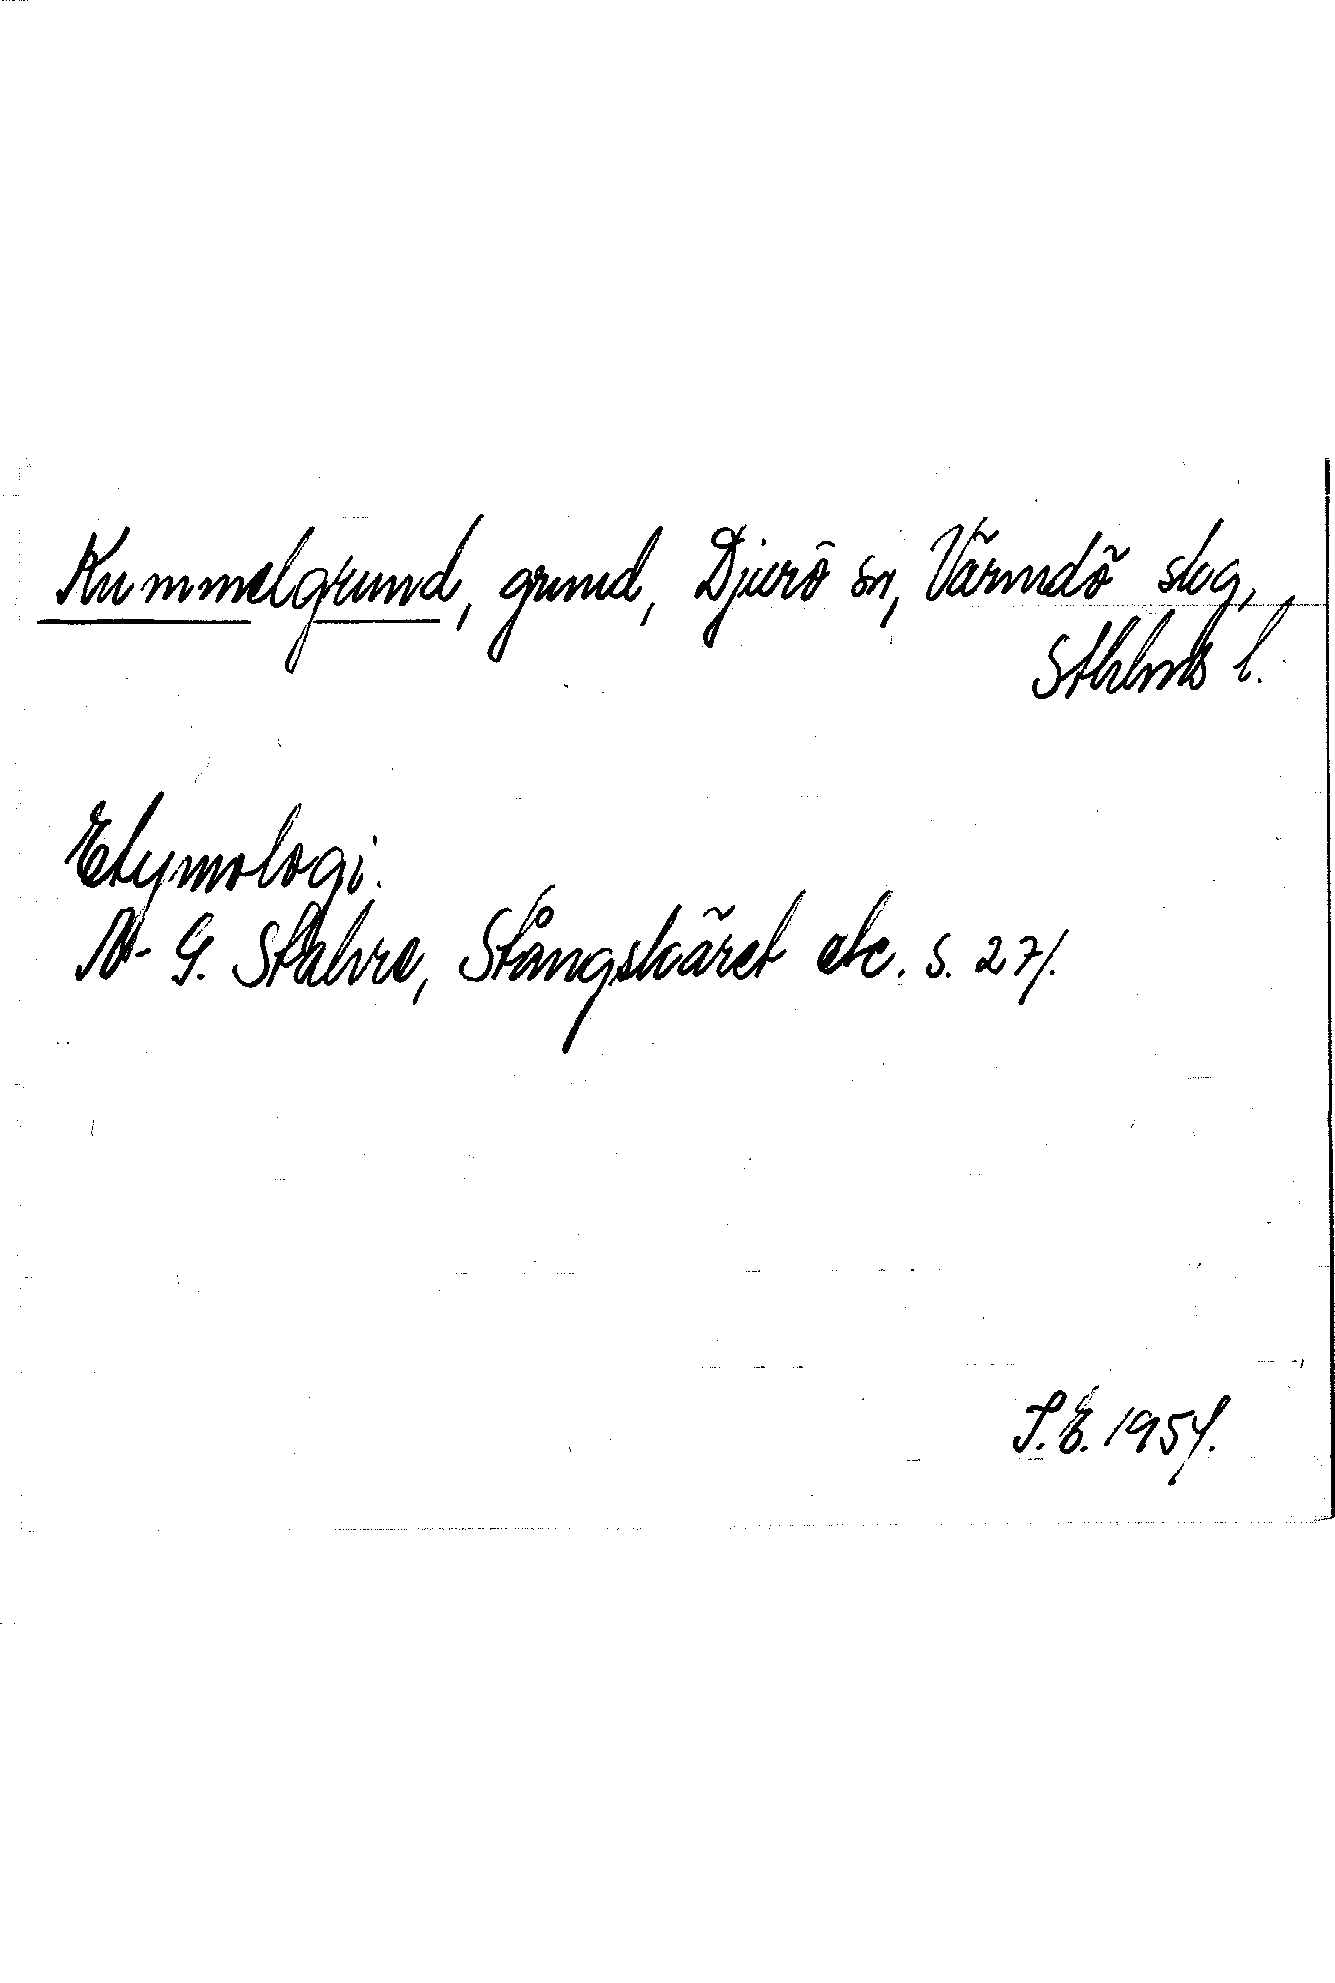 Kummelgrund, grund, Djurö sn, Värmdö skg,
Sthlms l.
Etymologi.
N-G. Stahre, Stångskäret etc. s. 271.
S.E. 1954.